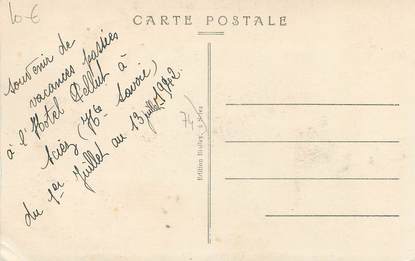 10 €
CARTE POSTALE
souvenir de
vacances passées
à l'Hotel Pellet à
Sciez (Hte Savoie)
du 1er Juillet au 13 juillet 1942.
74
Edition